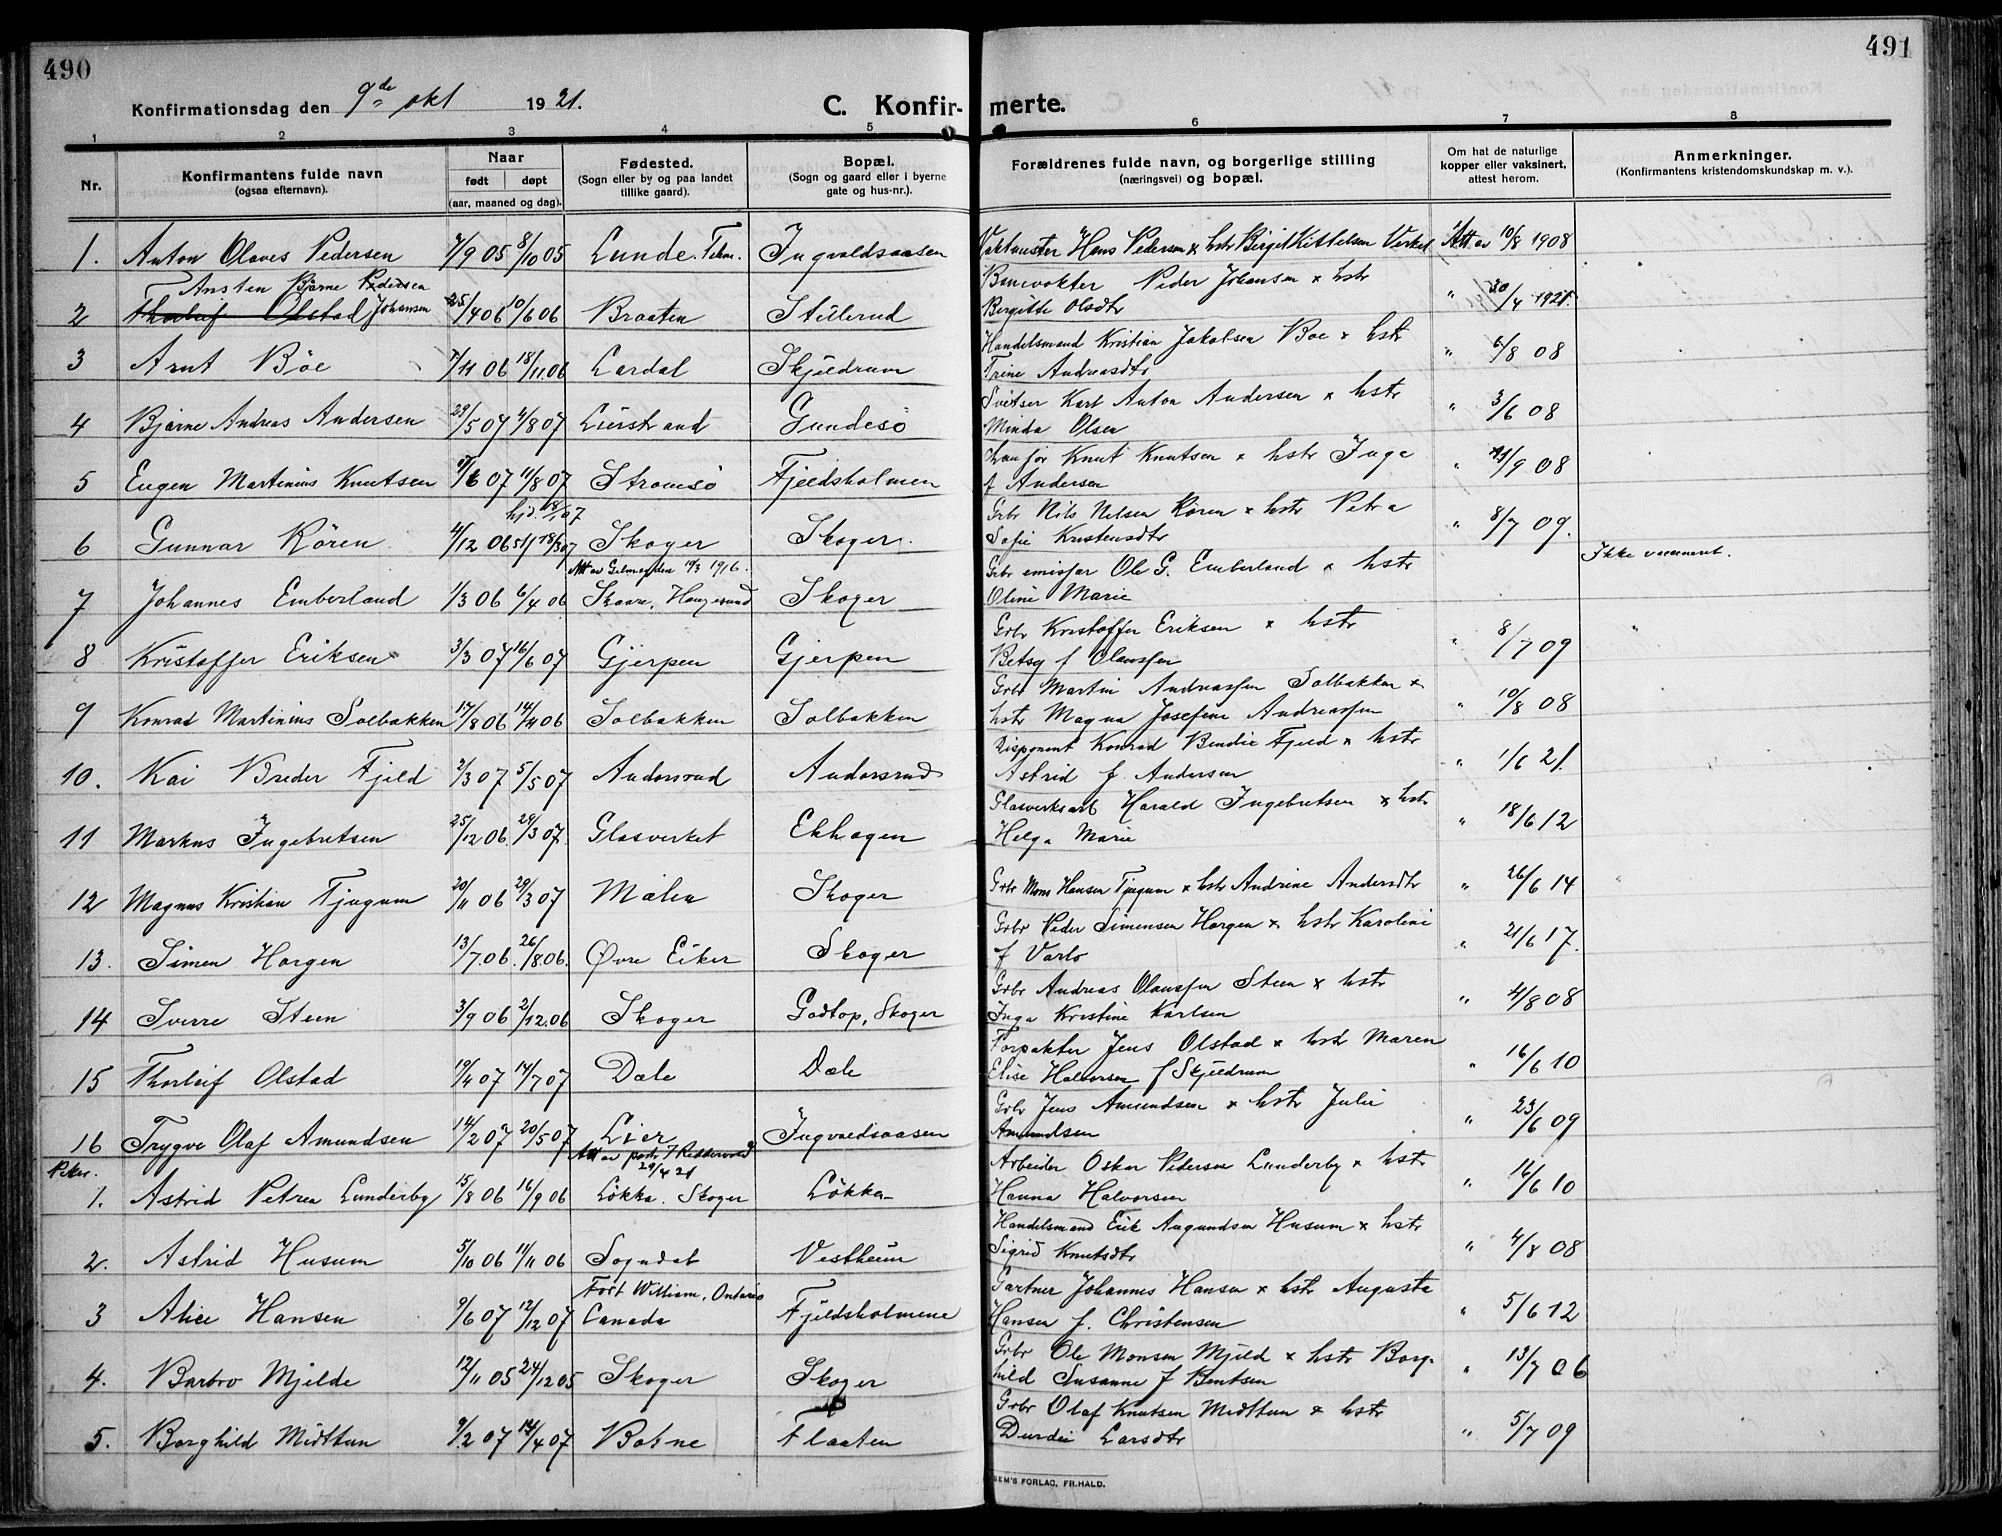 490
491
Konfirmationsdag den 9de okt 1921.
C. Konfirmerte.
1 2 3 4 5 6 7 8
Nr.
Konfirmantens fulde navn
(ogsaa efternavn).
Naar
født døpt
(aar, maaned og dag).
Fødested.
(Sogn eller by og paa landet
tillike gaard).
Bopæl.
(Sogn og gaard eller i byerne
gate og hus-nr.).
Forældrenes fulde navn, og borgerlige stilling
(næringsvei) og bopæl.
Om hat de naturlige
kopper eller vaksinert,
attest herom.
Anmerkninger.
(Konfirmantens kristendomskundskap m. v.).
1. Anton Olaves Pedersen 7/9 05 8/10 05 Lunde. Telm. Ingvaldsaasen Vaktmester Hans Pedersen x hstr Birgit Kittelsen Verket Att av 10/8 1908
Ansten Bjarne Pedersen
2 Thorleif Olstad Johansen 25/4 06 10/6 06 Braaten Stillerud Banevokter Peder Johansen x hstr
Birgitte Olsdtr " 30/4 1921.
3 Arnt Böe 7/11 06 18/11 06 Lardal Skjeldrum Handelsmand Kristian Jakobsen Boe x hstr
Trine Andreasdtr " 6/8 08
4 Bjarne Andreas Andersen 29/5 07 4/8 07 Lierstrand Gundesö Sveitser Karl Anton Andersen x hstr
Minda Olsen " 3/6 08
5 Eugen Martinius Knutsen 17/6 07 11/8 07 Strömsö Fjeldsholmen Chaufør Knut Knutsen x hstr Inga
f Andersen " 21/9 08
6 Gunnar Rören 4/12 06 hjd. 18/1 07 st 18/3 07 Skoger Skoger. Gbr Nils Nilsen Rören x hstr Petra
Sofie Kristensdtr " 8/7 09.
Att av Gilmeyden 19/3 1916.
7 Johannes Emberland 1/3 06 6/4 06 Skaare, Haugesund Skoger Gbr emisær Ole G. Emberland x hstr
Oline Marie Ikke vaccinert.
8 Kristoffer Eriksen 3/3 07 16/6 07 Gjerpen Gjerpen Gbr Kristoffer Eriksen x hstr
Betsy f Olaussen " 8/7 09
9 Konrad Martinius Solbakken 17/8 06 14/11 06 Solbakken Solbakken Gbr Martin Andreassen Solbakken x
hstr Magna Josefine Andreassen " 10/8 08
10. Kai Breder Fjeld 2/3 07 5/5 07 Andorsrud Andorsrud Disponent Konrad Bendic Fjeld x hstr
Astrid f. Andersen " 1/6 21.
11 Markus Ingebretsen 25/12 06. 29/3 07. Glasverket Ekhagen Glasverksarb Harald Ingebretsen x hstr
Helga Marie " 18/6 12
12 Magnus Kristian Tjugum 20/11 06 29/3 07 Målen Skoger Gbr Mons Hansen Tjugum x hstr Andrine Andersdtr " 26/6 14
13. Simen Horgen 13/7.06. 26/8.06. Øvre Eiker Skoger Gbr Peder Simensen Horgen x hstr Karoline
f Varlo " 21/6 17.
14 Sverre Steen 3/9 06 2/12.06 Skoger Godtop, Skoger Gbr Andreas Olaussen Steen x hstr
Inga Kristine Karlsen " 4/8 08
15 Thorleif Olstad 19/4 07 14/7 07 Dale Dale Forpakter Jens Olstad x hstr Maren
Elise Halvorsen f Skjeldrum " 16/6 10
16 Trygve Olaf Amundsen 14/2 07 20/5 07 Lier Ingvaldsaasen Gbr Jens Amundsen x hstr Julie
Amundsen " 23/6 09
Piker. Att av pastr. F Riddervold
29/4 21
1. Astrid Petrea Lunderby 15/8 06 16/9 06 Lökka. Skoger Lökka Arbeider Oskar Pedersen Lunderby x hstr
Hanna Halvorsen " 14/6 10
2. Astrid Husum 5/10 06 11/11 06 Sogndal Vestheim Handelsmand Erik Augundsen Husum x hstr
Sigrid Knutsdtr " 4/8 08
3 Alice Hansen 9/6 07 12/12 07 Fort William, Ontario
Canada Fjeldsholmene Gartner Johannes Hansen x hstr Augusta
Hansen f. Christensen " 5/6 12
4. Barbro Mjelde 12/11 05 24/12 05 Skoger Skoger Gbr Ole Monsen Mjeld x hstr Borg-
hild Susanne f Bentsen " 13/7 06
5. Borghild Midttun 9/2 07 14/4 07 Botne Flaaten Gbr Olaf Knutsen Midttun x hstr
Durdei Larsdtr " 5/7 09
SEM'S FORLAG, FR.HALD.